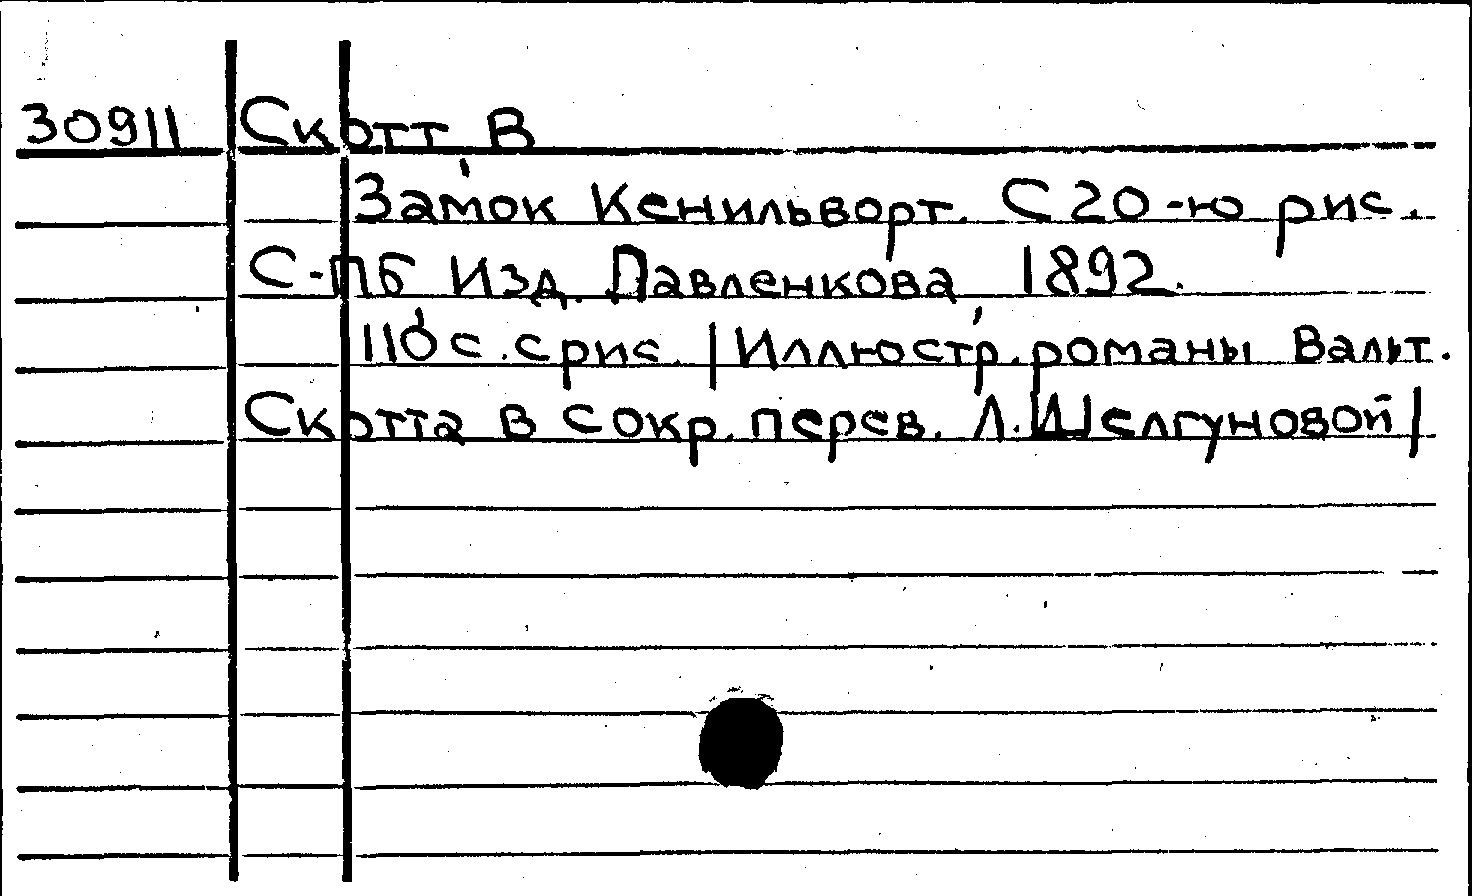 30911 Скотт В
Замок Кенильворт. С 20-ю рис.
С-ПБ Изд. Павленкова 1892.
110 с. с рис. | Иллюстр. романы Вальт.
Скотта в сокр. перев. Л. Шелгуновой |